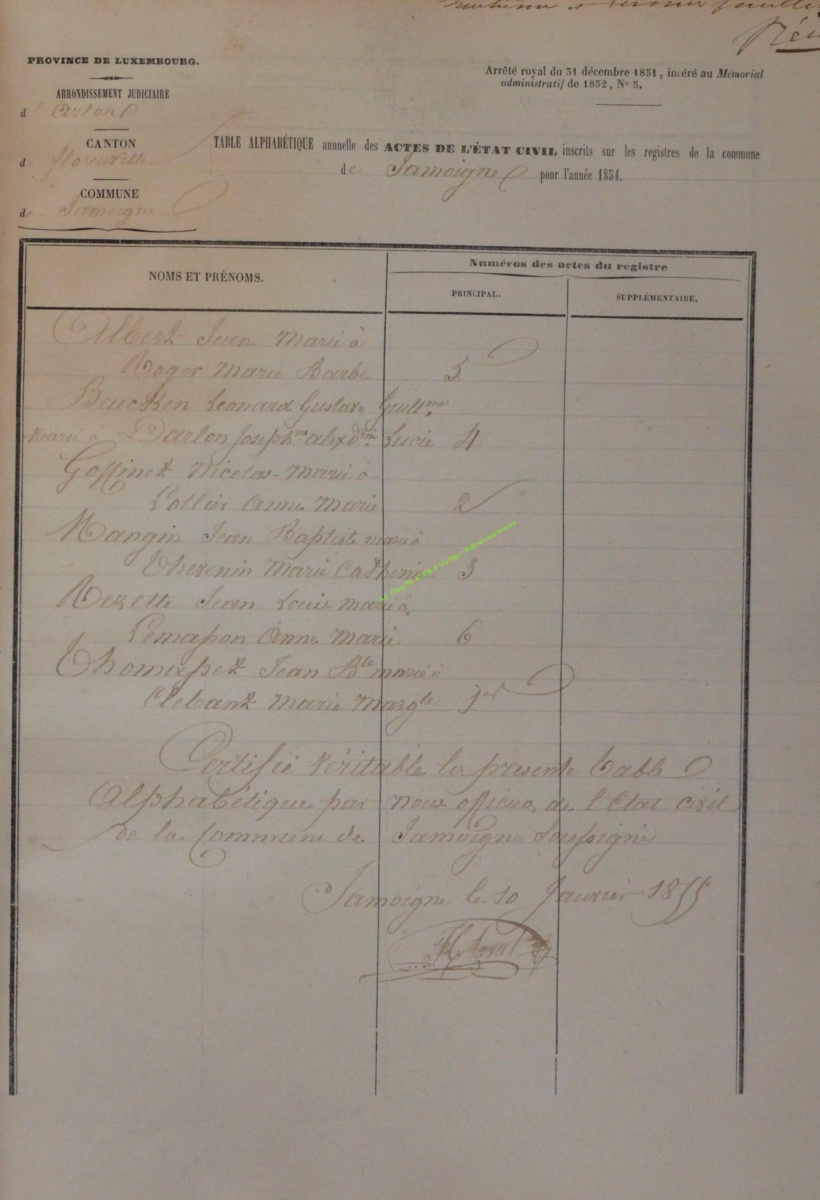 PROVINCE DE LUXEMBOURG.
ARRONDISSEMENT JUDICIAIRE
d'Arlon
CANTON
de florenville
COMMUNE
de Jamoigne
Arrêté royal du 31 décembre 1831, inséré au Mémorial
administratif de 1832, No 5.
TABLE ALPHABÉTIQUE annuelle des ACTES DE L'ÉTAT CIVIL inscrits sur les registres de la commune
de Jamoigne pour l'année 1854.
NOMS ET PRÉNOMS.
Numéros des actes du registre
PRINCIPAL.
SUPPLÉMENTAIRE.
Albert Jean Marié à
Roger Marie Barbe 5
Beucken Léonard Gustave Guillme
Marié à Darlon Josephne Lucie 4
Goffinet Nicolas Marié à
Collier Anne Marie 2
Mangin Jean Baptiste marié à
Therenin Marie Catherine 3
Rezette Jean Louis marié à
Lemasson Anne Marie 6
Thomasset Jean Bte marié à
Clebant Marie Margte 1er
Certifié Véritable la présente table
Alphabétique par nous officier de l'Etat civil
de la Commune de Jamoigne Soussigné
Jamoigne le 10 Janvier 1855